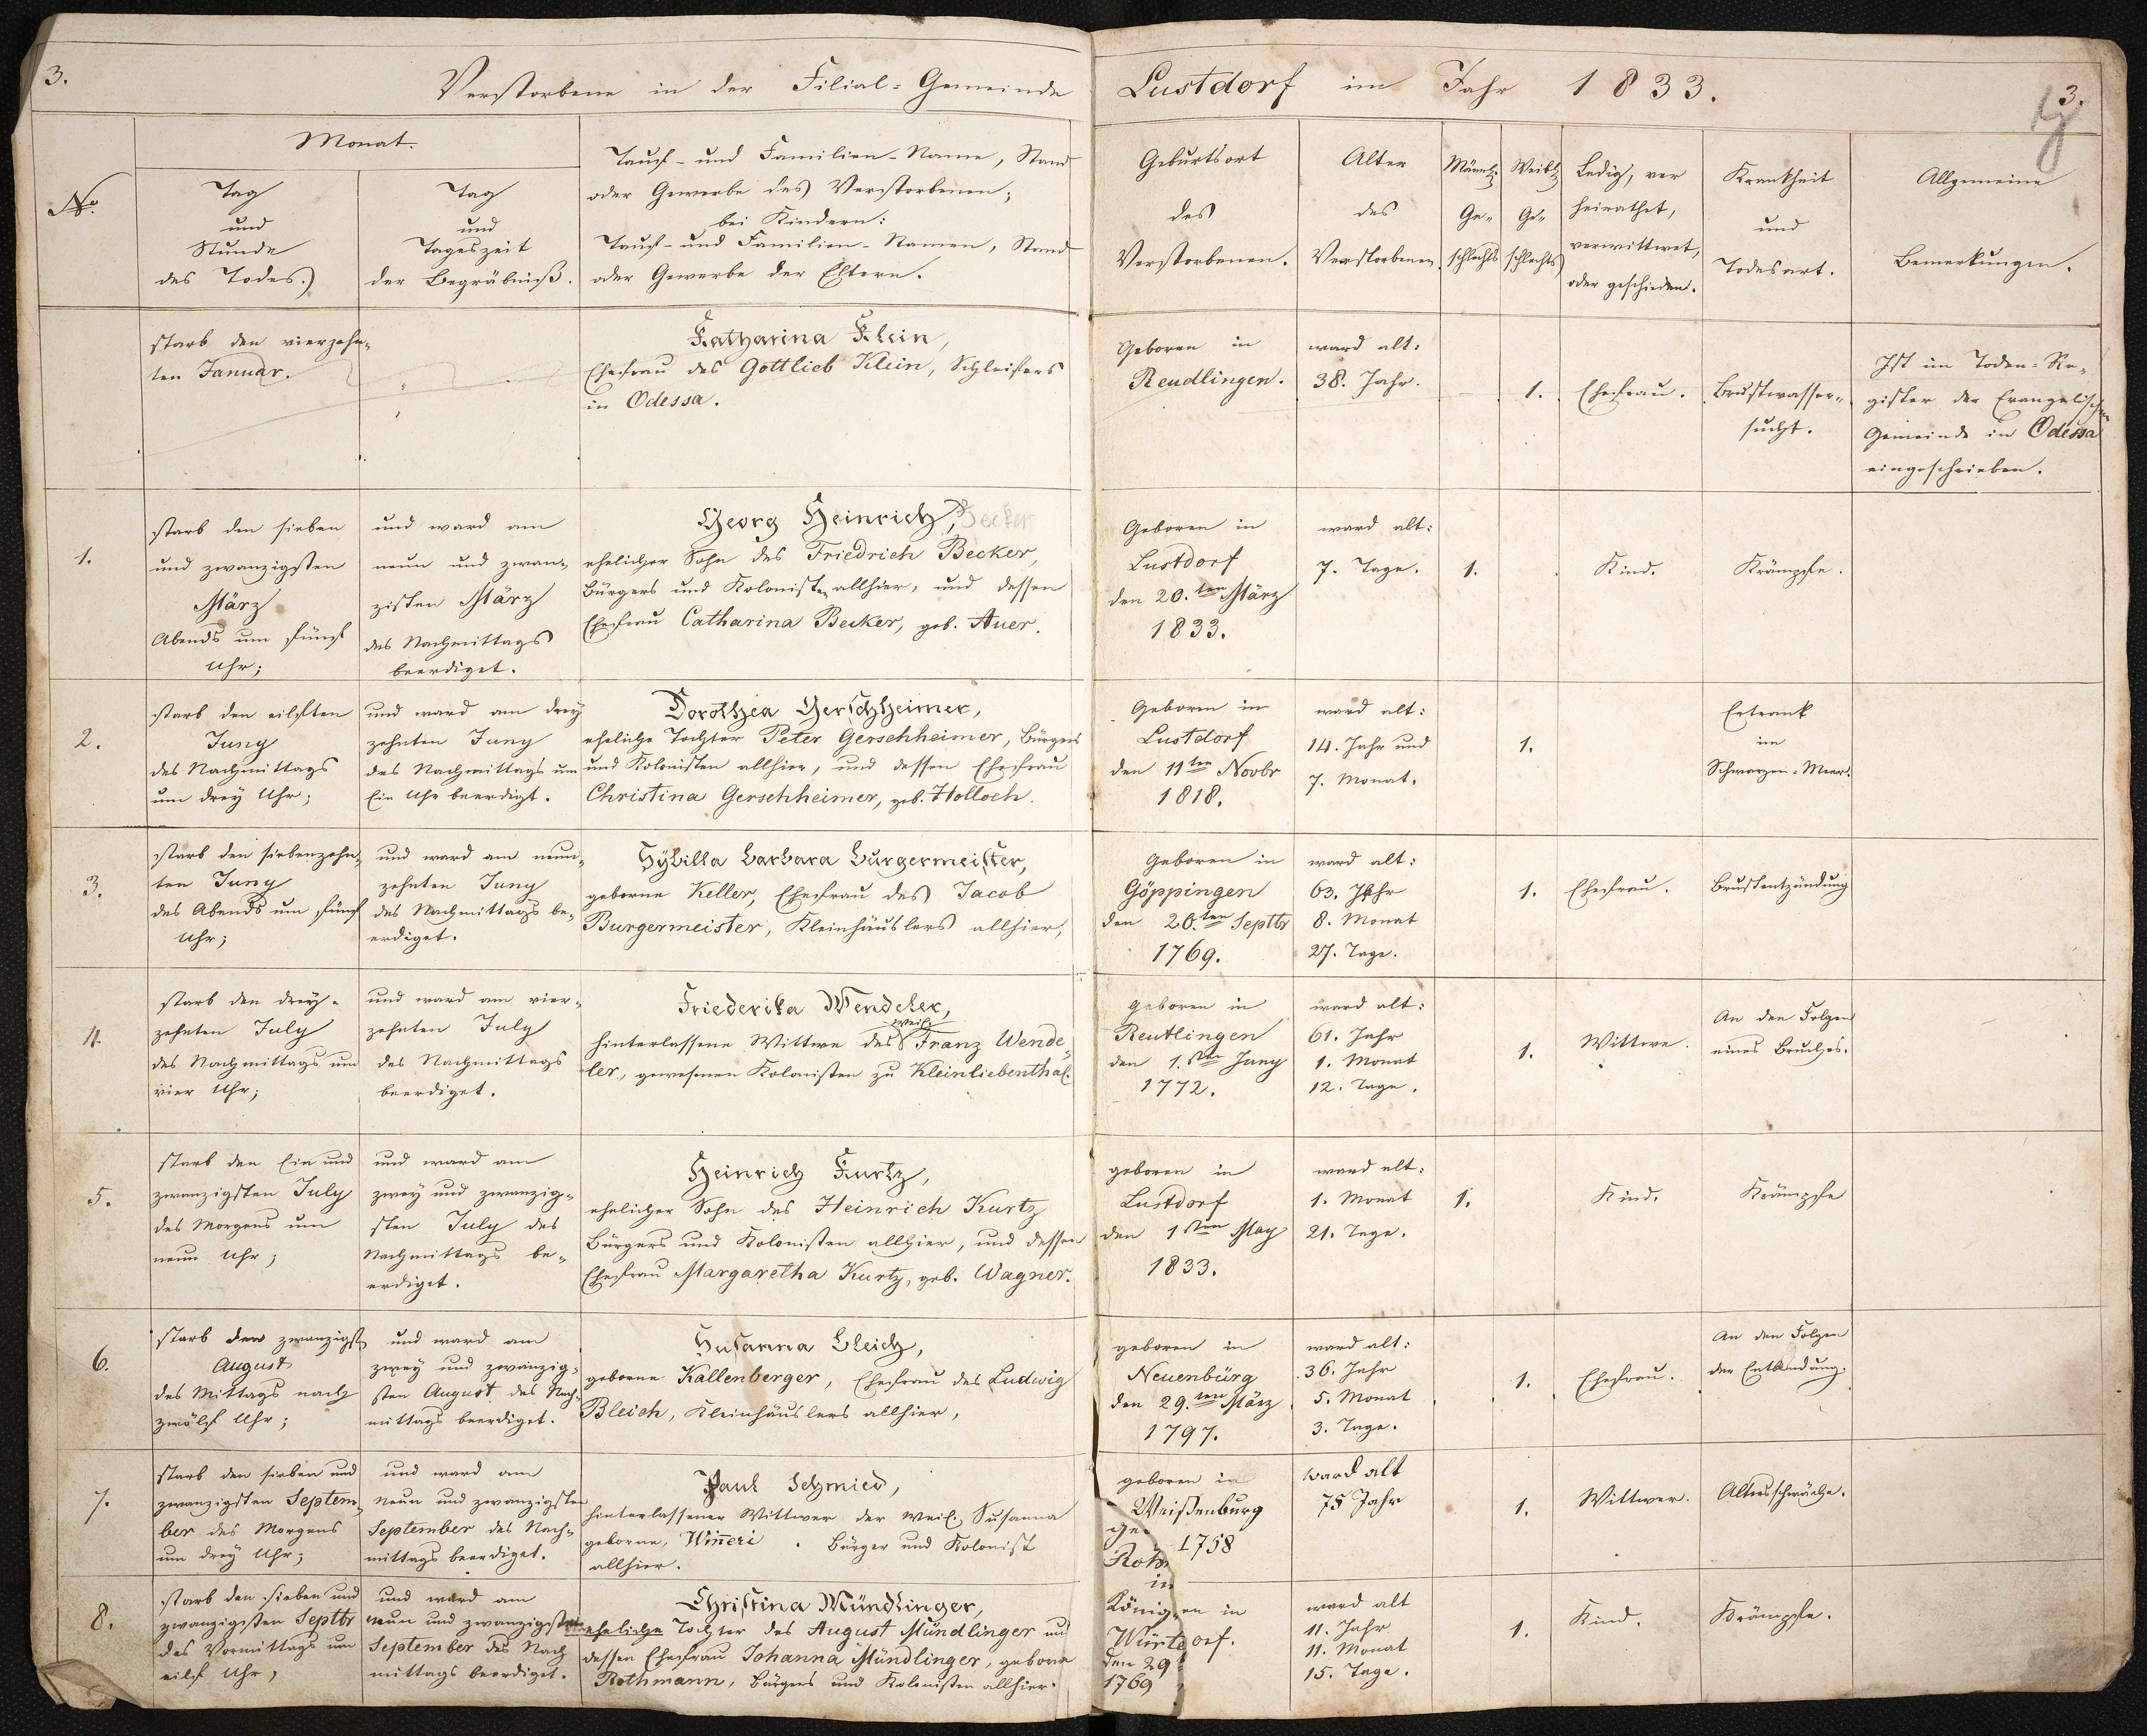 3.
Verstorbene in der Filial-Gemeinde Lustdorf im Jahr 1833.
3.
No.
Monat.
Tag
und
Stunde
des Todes.
Tag
und
Tageszeit
der Begräbniß.
Tauf- und Familien-Name, Stand
oder Gewerbe des Verstorbenen;
bei Kindern:
Tauf- und Familien-Namen, Stand
oder Gewerbe der Eltern.
Geburtsort
des
Verstorbenen.
Alter
des
Verstorbenen
Männl.
Ge-
schlechts
Weibl.
Ge-
schlechts
Ledig, ver
heirathet,
verwittwet,
oder geschieden.
Krankheit
und
Todesart.
Allgemeine
Bemerkungen.
starb den vierzehn-
ten Januar.
Katharina Klein,
Ehefrau des Gottlieb Klein, Schleifers
in Odessa.
Geboren in
Reudlingen.
ward alt:
38. Jahr.
1.
Ehefrau.
Brustwasser-
sucht.
Ist im Toden-Re-
gister der Evangelischen
Gemeinde in Odessa
eingeschrieben.
1.
starb den sieben
und zwanzigsten
März
Abends um fünf
Uhr;
und ward am
neun und zwan-
zisten März
des Nachmittags
beerdiget.
Georg Heinrich, Becker
ehelicher Sohn des Friedrich Becker,
Bürgers und Kolonisten allhier, und dessen
Ehefrau Catharina Becker, geb. Auer.
Geboren in
Lustdorf
den 20.ten März
1833.
ward alt:
7. Tage.
1.
Kind.
Krämpfe.
2.
starb den eilften
Juny
des Nachmittags
um drey Uhr;
und ward am drey
zehnten Juny
des Nachmittags um
Ein Uhr beerdigt.
Dorothea Gerschheimer,
eheliche Tochter Peter Gerschheimer, Bürgers
und Kolonisten allhier, und dessen Ehefrau
Christina Gerschheimer, geb. Holloch.
Geboren in
Lustdorf
den 11ten Novbr
1818.
ward alt:
14. Jahr und
7. Monat.
1.
Ertrank
im
Schwarzen-Meer.
3.
starb den siebenzehn-
ten Juny
des Abends um fünf
Uhr;
und ward am neun-
zehnten Juny
des Nachmittags be-
erdiget.
Sÿbilla Barbara Burgermeister,
geborne Keller, Ehefrau des Jacob
Burgermeister, Kleinhäuslers allhier,
Geboren in
Göppingen
den 20.ten Septbr
1769.
ward alt:
63. Jahr
8. Monat
27. Tage.
1.
Ehefrau.
Brustentzündung
4.
starb den drey-
zehnten July
des Nachmittags um
vier Uhr;
und ward am vier-
zehnten July
des Nachmittags
beerdiget.
Friederika Wendeler,
weil.
hinterlassene Wittwe des Franz Wende-
ler, gewesenen Kolonisten zu Kleinliebenthal.
geboren in
Reutlingen
den 1.sten Juny
1772.
ward alt:
61. Jahr
1. Monat
12. Tage.
1.
Wittwe.
An den Folgen
eines Bruches.
5.
starb den Ein und
zwanzigsten July
des Morgens um
neun Uhr;
und ward am
zwey und zwanzig-
sten July des
Nachmittags be-
erdiget.
Heinrich Kurtz,
ehelicher Sohn des Heinrich Kurtz
Bürgers und Kolonisten allhier, und dessen
Ehefrau Margaretha Kurtz, geb. Wagner.
geboren in
Lustdorf
den 1sten May
1833.
ward alt:
1. Monat
21. Tage.
1.
Kind.
Krämpfe
6.
starb den zwanzigst
August
des Mittags nach
zwölf Uhr;
und ward am
zwey und zwanzig-
sten August des Nach-
mittags beerdiget.
Susanna Bleich,
geborne Kallenberger, Ehefrau des Ludwig
Bleich, Kleinhäuslers allhier,
geboren in
Neuenbürg
den 29.ten März
1797.
ward alt:
36. Jahr
5. Monat
3. Tage.
1.
Ehefrau.
An den Folgen
der Entbindung.
7.
starb den sieben und
zwanzigsten Septem-
ber des Morgens
um drey Uhr;
und ward am
Neun und zwanzigsten
September des Nach-
mittags beerdiget.
Paul Schmied,
hinterlassener Wittwer der weil. Susanna
geborne, Wiñeri. Bürger und Kolonist
allhier.
geboren in
Weißenburg
1758
ward alt
75 Jahr
1.
Wittwer.
Altersschwäche.
8.
starb den sieben und
zwanzigsten Septbr
des Vormittags um
eilf Uhr,
und ward am
neun und zwanzigsten
September des Nach
mittags beerdiget.
Christina Mündlinger,
eheliche Tochter des August Mündlinger und
dessen Ehefrau Johanna Mündlinger, geborne
Rothmann, Bürgers und Kolonisten allhier.
in
den 29
1769
ward alt
11. Jahr
11. Monat
15. Tage.
1.
Kind.
Krämpfe.